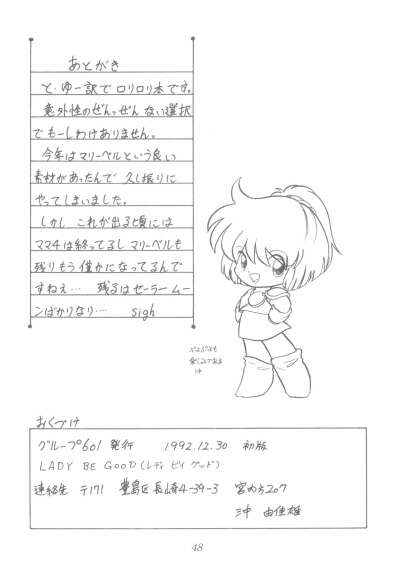 あとがき
と、ゆー訳でロリロリ本です。
意外性のぜんっぜんない選択
でもーしわけありません。
今年はマリーベルという良い
素材があったんで 久し振りに
やってしまいました。
しかし これが出る頃には
ママ4は終ってるし マリーベルも
残りもう僅かになってるんで
すねえ… 残るはセーラームー
ンばかりなり… sigh
おくづけ
グループ601 発行 1992.12.30 初版
LADY BE GOOD (レディ ビイ グッド)
連絡先 〒171 豊島区長崎4-39-3 207
48